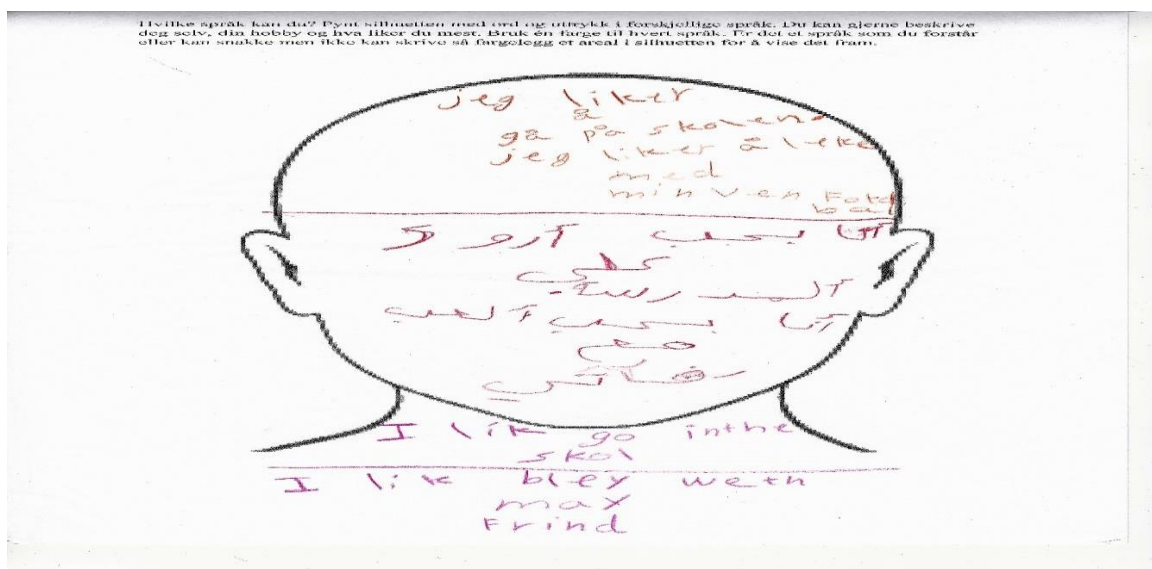 Hvilke språk kan du? Pynt silhuetten med ord og uttrykk i forskjellige språk. Du kan gjerne beskrive
deg selv, din hobby og hva liker du mest. Bruk én farge til hvert språk. Er det et språk som du forstår
eller kan snakke men ikke kan skrive så fargelegg et areal i silhuetten for å vise det fram.
jeg liker
å
gå på skolen
jeg liker å leke
med
min ven Fot
bal
أنا بحب أروح
على
ألمدرسة
أنا بحب ألعب
مع
رفقاتي
I lik go inthe
skol
I lik bley weth
may
Frind